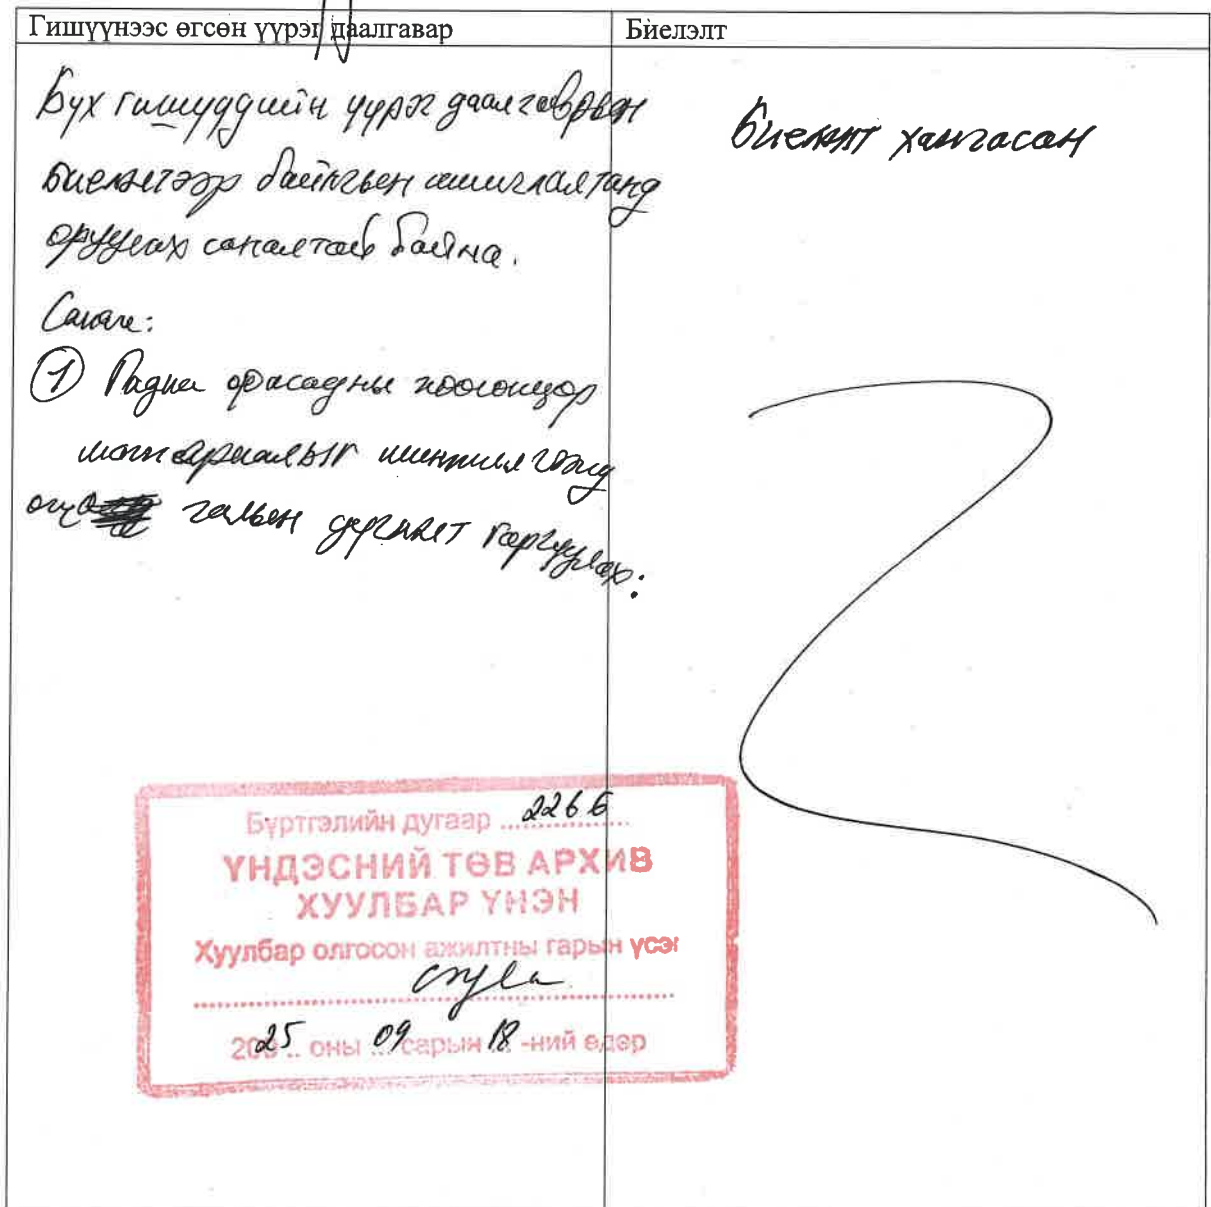 Гишүүнээс өгсөн үүрэг даалгавар
Биелэлт
Бүх гишүүдийн үүрэг даалгаврын
биелэлтээр байнгын ашиглалтанд
оруулах саналтай байна.
Санал:
① Гадна фасадны
материалыг шинжилгээнд
өгч галын дүгнэлт гаргуулах.
Биелэлт хангасан
Бүртгэлийн дугаар 2266
ҮНДЭСНИЙ ТӨВ АРХИВ
ХУУЛБАР ҮНЭН
Хуулбар олгосон ажилтны гарын үсэг
2025 оны 09 сарын 18 -ний өдөр